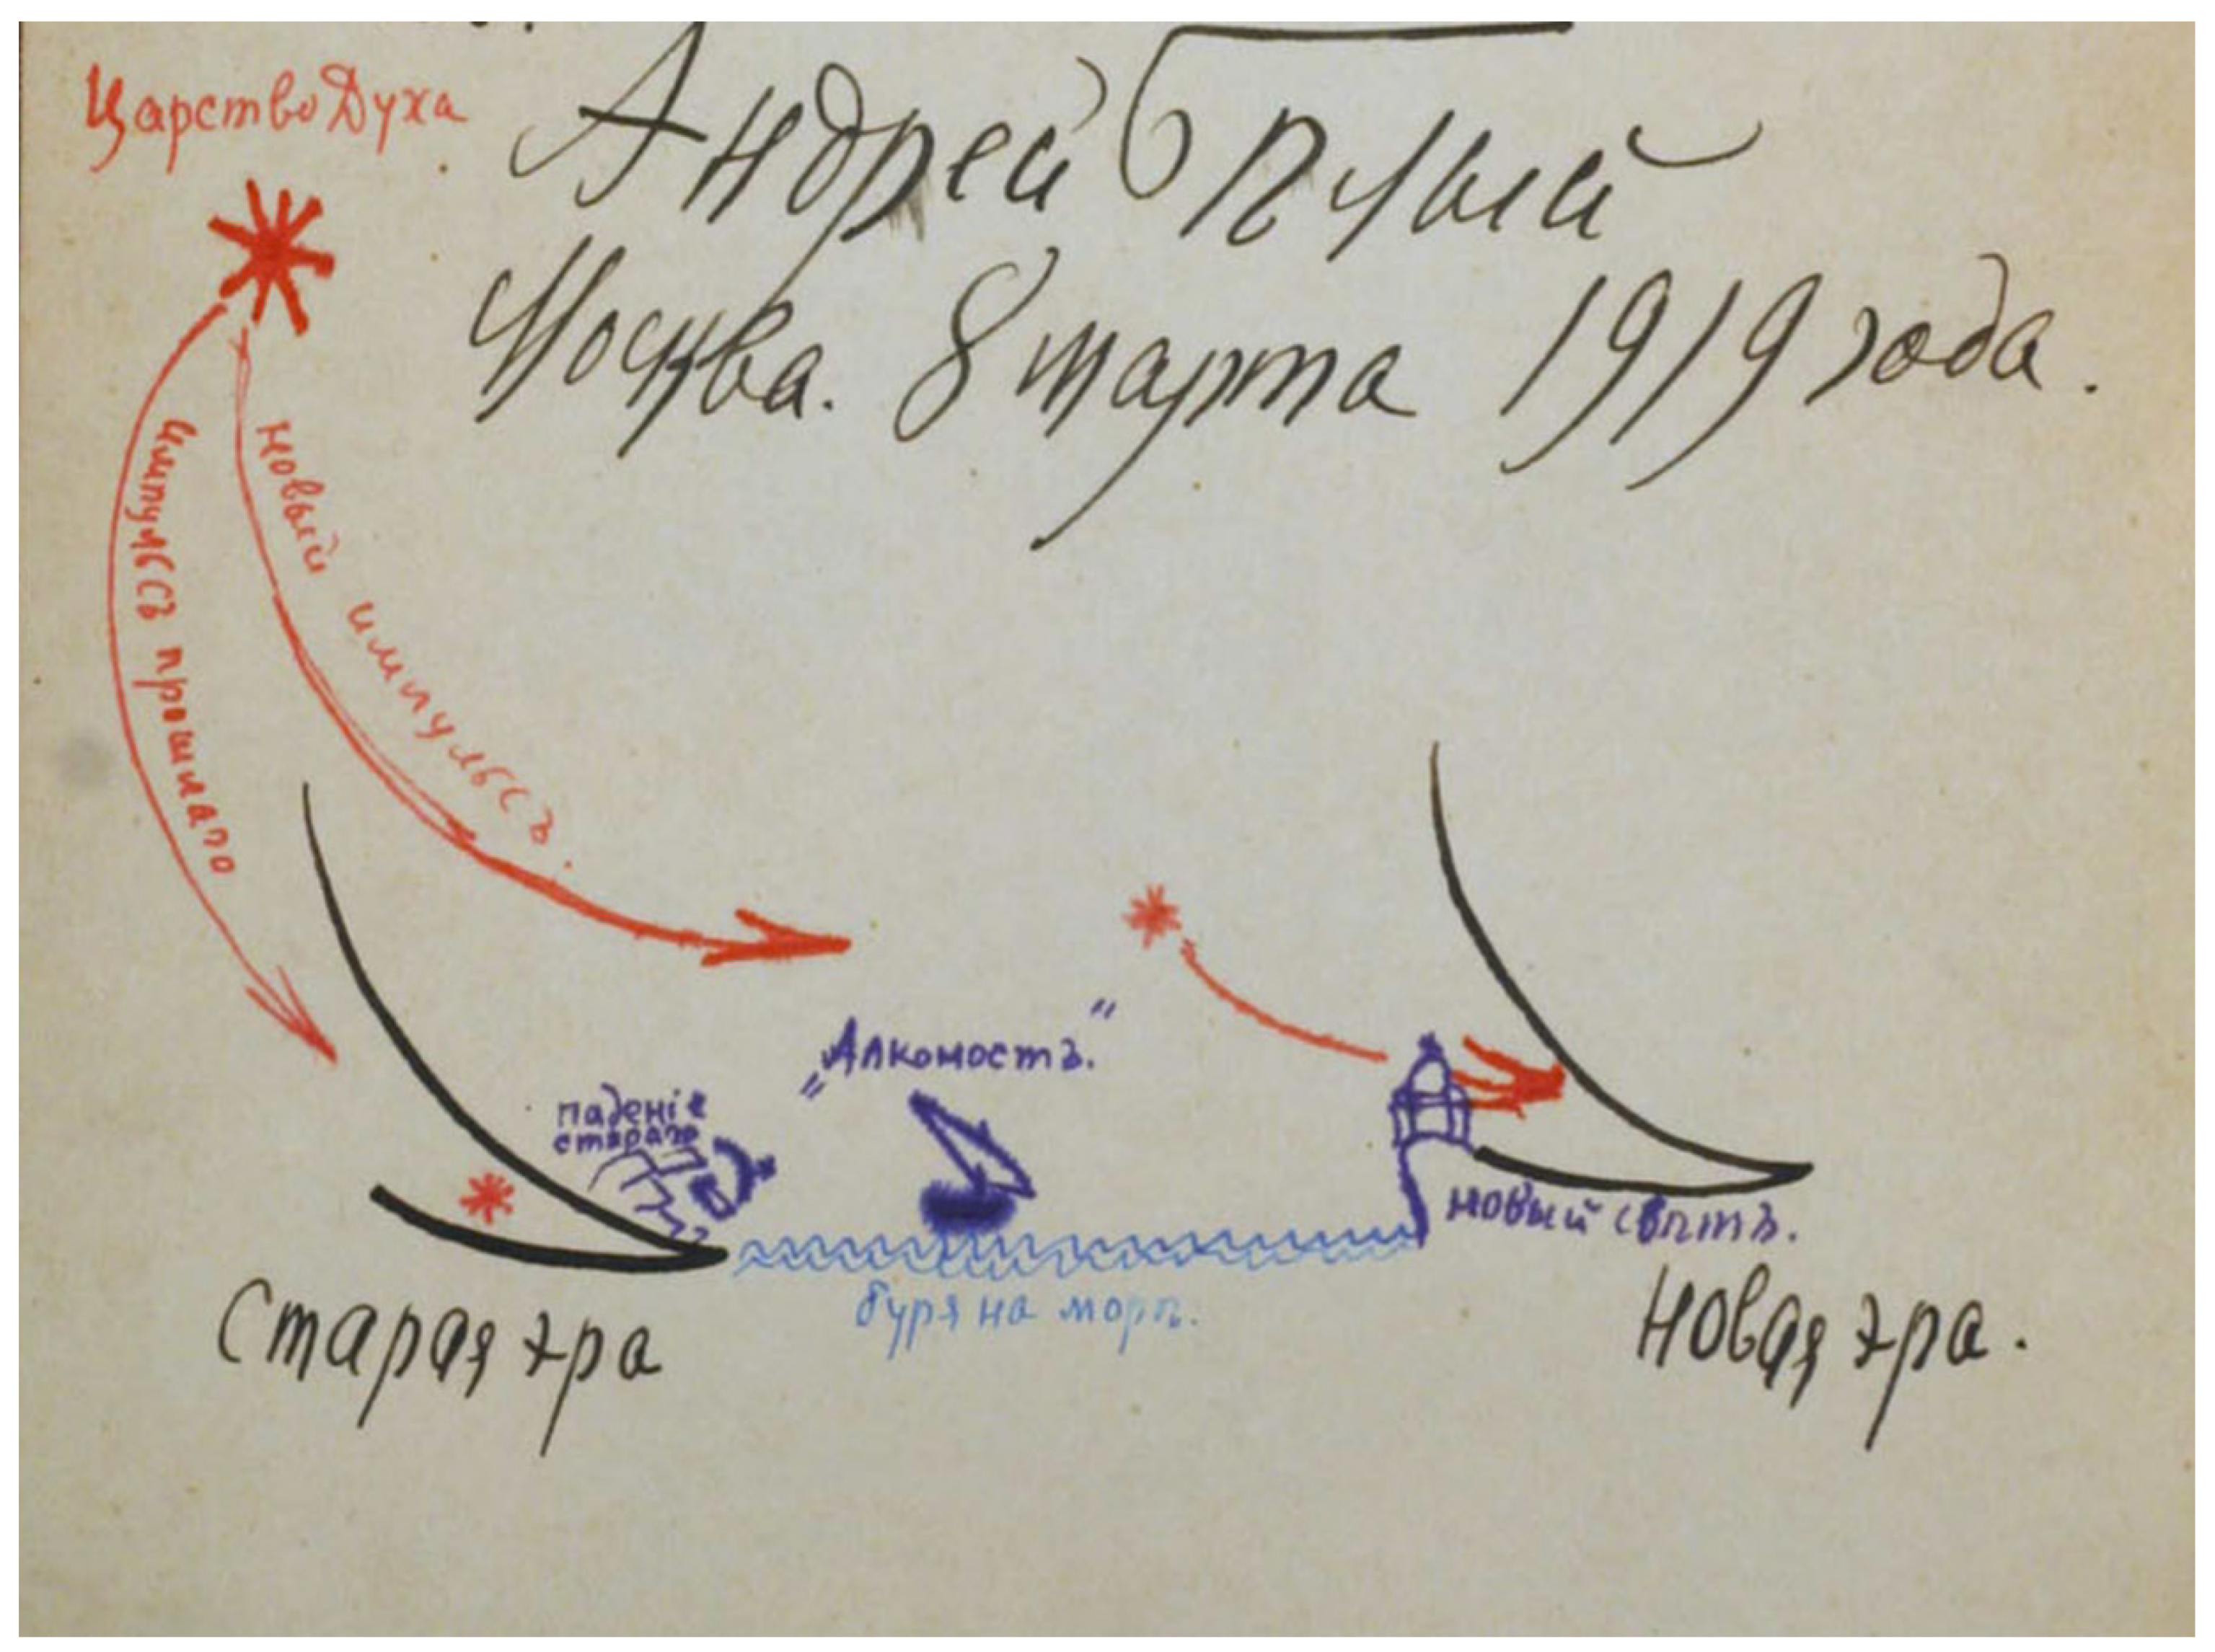 Царство Духа
Андрей Бѣлый
Москва. 8 марта 1919 года.
Импульсъ прошлаго
Новый импульсъ.
„Алконостъ."
паденіе
стараго
новый свѣтъ.
буря на морѣ.
Старая эра
Новая эра.